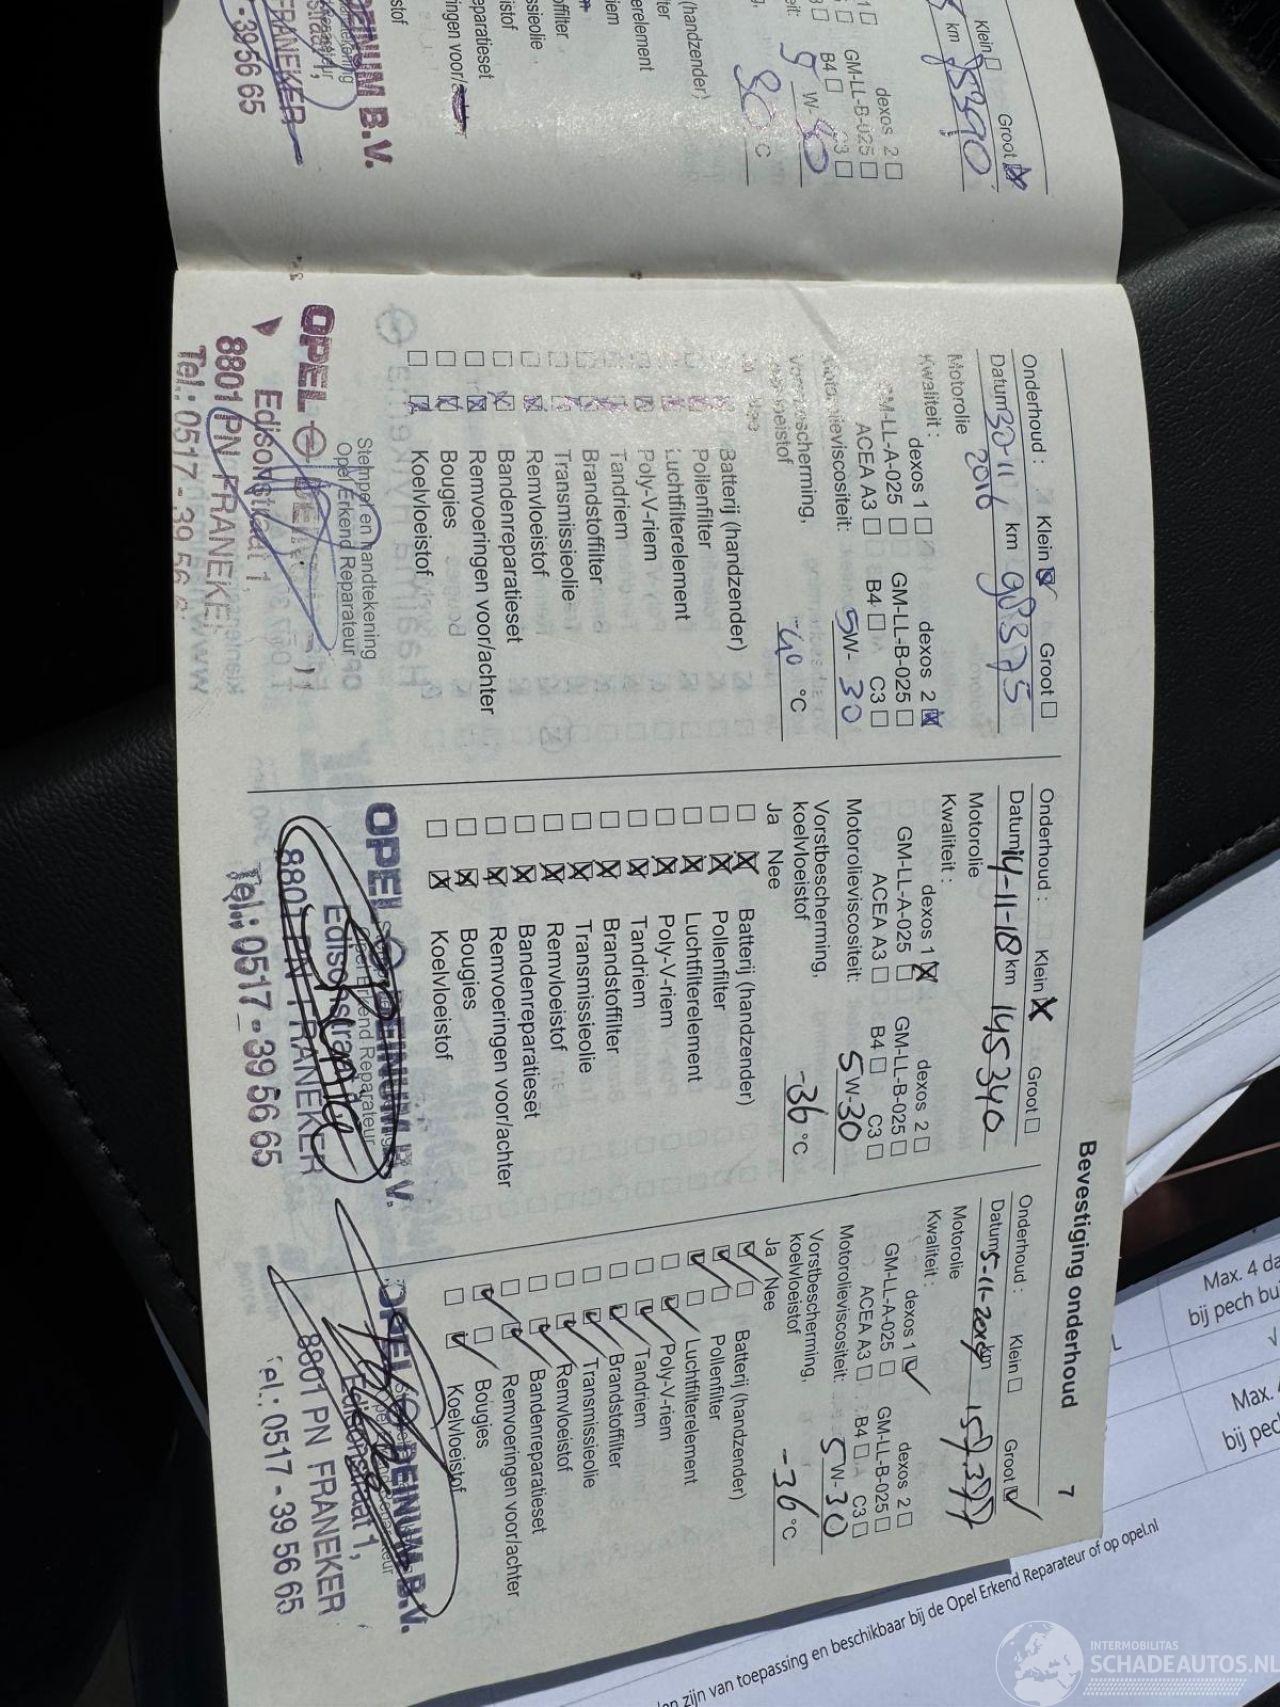 Bevestiging onderhoud 7
Klein Groot
km 75390
dexos 2
GM-LL-B-025
B4 C3
W- 30
30 °C
(handzender)
erelement
riem
offilter
ssieolie
istof
eparatieset
ingen voor/
istof
DEINUM B.V.
FRANEKER
- 39 56 65
Onderhoud : Klein Groot
Datum 30-11 2016 km 98375
Motorolie
Kwaliteit : dexos 1 dexos 2
GM-LL-A-025 GM-LL-B-025
ACEA A3 B4 C3
Motorolieviscositeit: 5W- 30
Vorstbescherming,
koelvloeistof -40 °C
Batterij (handzender)
Pollenfilter
Luchtfilterelement
Poly-V-riem
Tandriem
Brandstoffilter
Transmissieolie
Remvloeistof
Bandenreparatieset
Remvoeringen voor/achter
Bougies
Koelvloeistof
Stempel en handtekening
Opel Erkend Reparateur
OPEL
Edisonstraat 1,
8801 PN FRANEKER
Tel.: 0517 - 39 56 6
Onderhoud : Klein Groot
Datum 14-11-18 km 145340
Motorolie
Kwaliteit : dexos 1 dexos 2
GM-LL-A-025 GM-LL-B-025
ACEA A3 B4 C3
Motorolieviscositeit: 5W-30
Vorstbescherming,
koelvloeistof -36 °C
Ja Nee
Batterij (handzender)
Pollenfilter
Luchtfilterelement
Poly-V-riem
Tandriem
Brandstoffilter
Transmissieolie
Remvloeistof
Bandenreparatieset
Remvoeringen voor/achter
Bougies
Koelvloeistof
Opel Erkend Reparateur
OPEL DEINUM B.V.
Edisonstraat
8801 PN FRANEKER
Tel.: 0517 - 39 56 65
Onderhoud : Klein Groot
Motorolie
Kwaliteit : dexos 1 dexos 2
GM-LL-A-025 GM-LL-B-025
ACEA A3 B4 C3
Motorolieviscositeit: 5W-30
Vorstbescherming,
koelvloeistof -36 °C
Ja Nee
Batterij (handzender)
Pollenfilter
Luchtfilterelement
Poly-V-riem
Tandriem
Brandstoffilter
Transmissieolie
Remvloeistof
Bandenreparatieset
Remvoeringen voor/achter
Bougies
Koelvloeistof
OPEL DEINUM B.V.
Edisonstraat 1,
8801 PN FRANEKER
Tel.: 0517 - 39 56 65
Max. 4 da
bij pech bu
Max.
bij pec
en zijn van toepassing en beschikbaar bij de Opel Erkend Reparateur of op opel.nl
INTERMOBILITAS
SCHADEAUTOS.NL